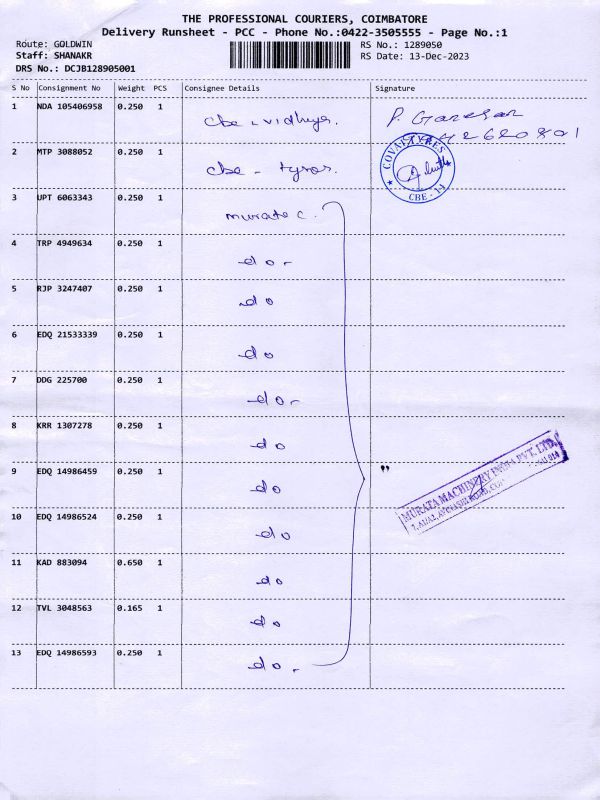 THE PROFESSIONAL COURIERS, COIMBATORE
Delivery Runsheet - PCC - Phone No.:0422-3505555 - Page No.:1
Route: GOLDWIN
Staff: SHANAKR
DRS No.: DCJB128905001
RS No.: 1289050
RS Date: 13-Dec-2023
S No Consignment No Weight PCS Consignee Details Signature
1 NDA 105406958 0.250 1 cbe - vidhya. P. Ganesan
2 MTP 3088052 0.250 1 cbe - tyres. COVAI TYRES CBE - 14
3 UPT 6063343 0.250 1 murate c.
4 TRP 4949634 0.250 1 do -
5 RJP 3247407 0.250 1 do
6 EDQ 21533339 0.250 1 do
7 DDG 225700 0.250 1 do -
8 KRR 1307278 0.250 1 do
9 EDQ 14986459 0.250 1 do "
MURATA MACHINERY INDIA PVT. LTD.
10 EDQ 14986524 0.250 1 do
11 KAD 883094 0.650 1 do
12 TVL 3048563 0.165 1 do
13 EDQ 14986593 0.250 1 do -